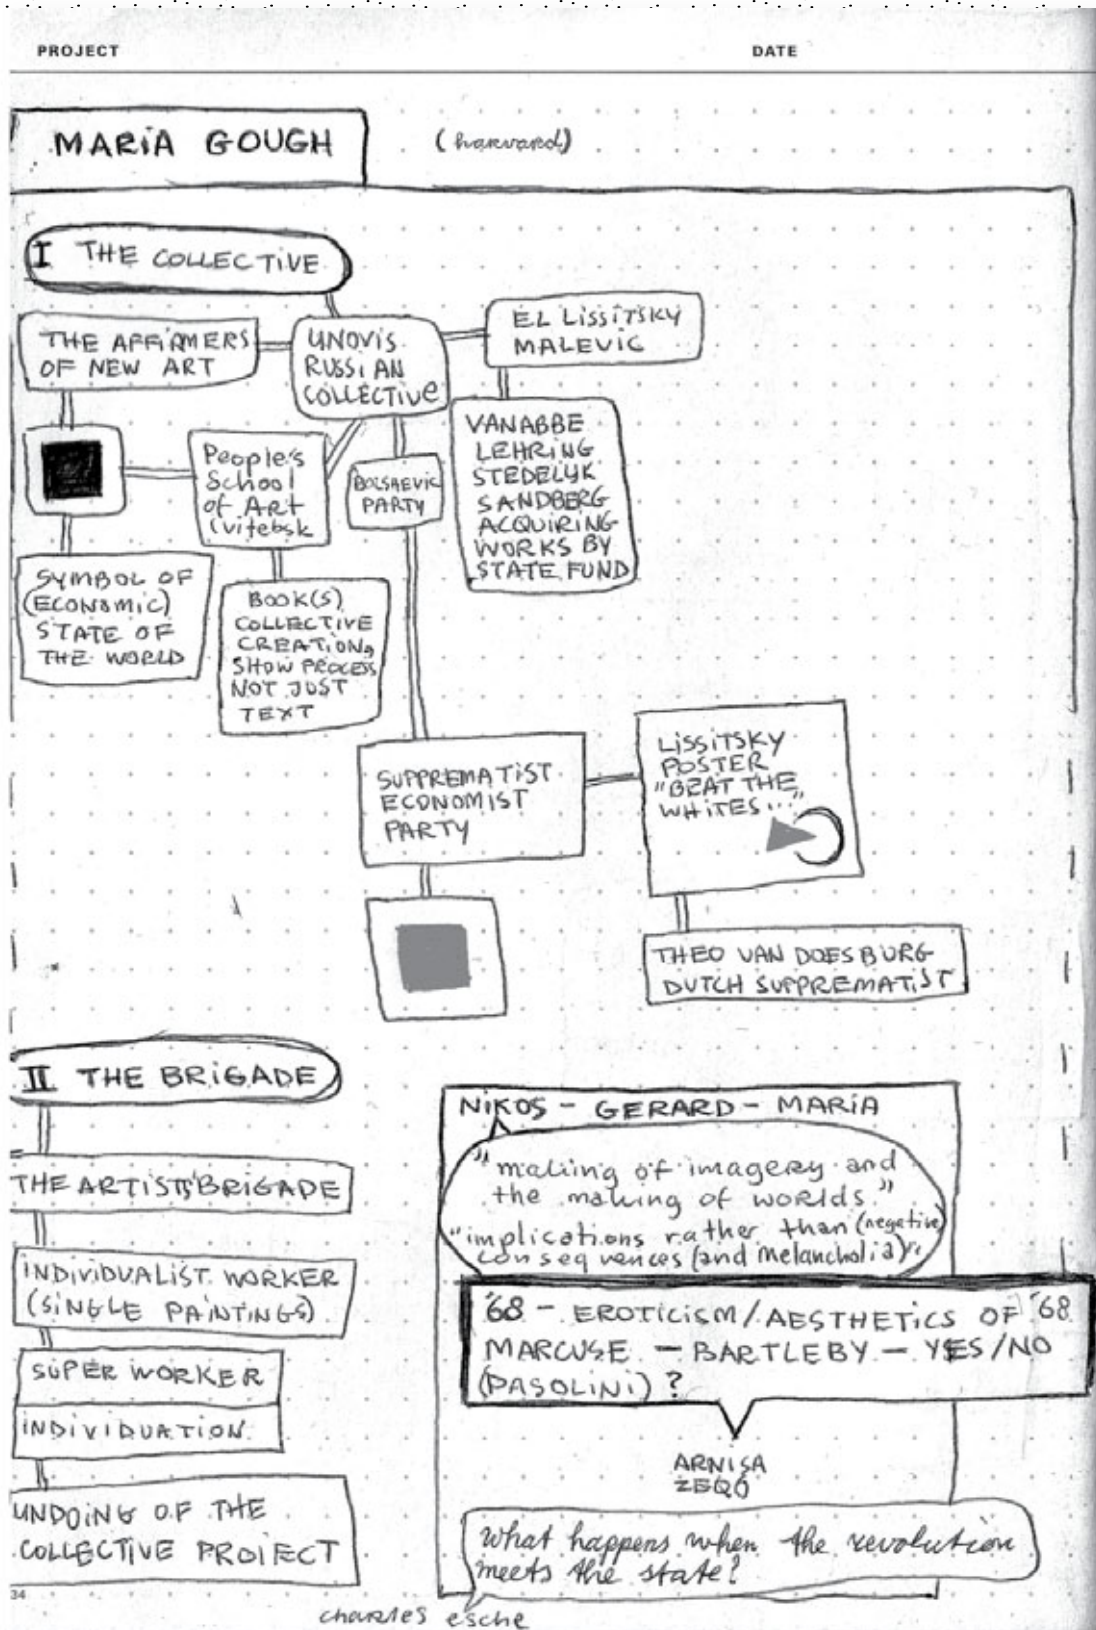 PROJECT
DATE
MARIA GOUGH
(harvard)
I THE COLLECTIVE
THE AFFIRMERS
OF NEW ART
UNOVIS
RUSSIAN
COLLECTIVE
EL LISSITSKY
MALEVIC
VANABBE
LEHRING
STEDELYK
SANDBERG
ACQUIRING
WORKS BY
STATE FUND
People's
School
of Art
(vitebsk
BOLSHEVIC
PARTY
SYMBOL OF
(ECONOMIC)
STATE OF
THE WORLD
BOOK(S)
COLLECTIVE
CREATION,
SHOW PROCESS
NOT JUST
TEXT
SUPPREMATIST
ECONOMIST
PARTY
LISSITSKY
POSTER
"BEAT THE
WHITES..."
THEO VAN DOESBURG
DUTCH SUPPREMATIST
II THE BRIGADE
THE ARTISTS' BRIGADE
INDIVIDUALIST WORKER
(SINGLE PAINTINGS)
SUPER WORKER
INDIVIDUATION
UNDOING OF THE
COLLECTIVE PROIECT
NIKOS - GERARD - MARIA
"making of imagery and
the making of worlds"
"implications rather than (negative)
consequences (and melancholia)"
'68 - EROTICISM/AESTHETICS OF '68
MARCUSE - BARTLEBY - YES/NO
(PASOLINI) ?
ARNISA
ZEQO
What happens when the revolution
meets the state?
34
charles esche